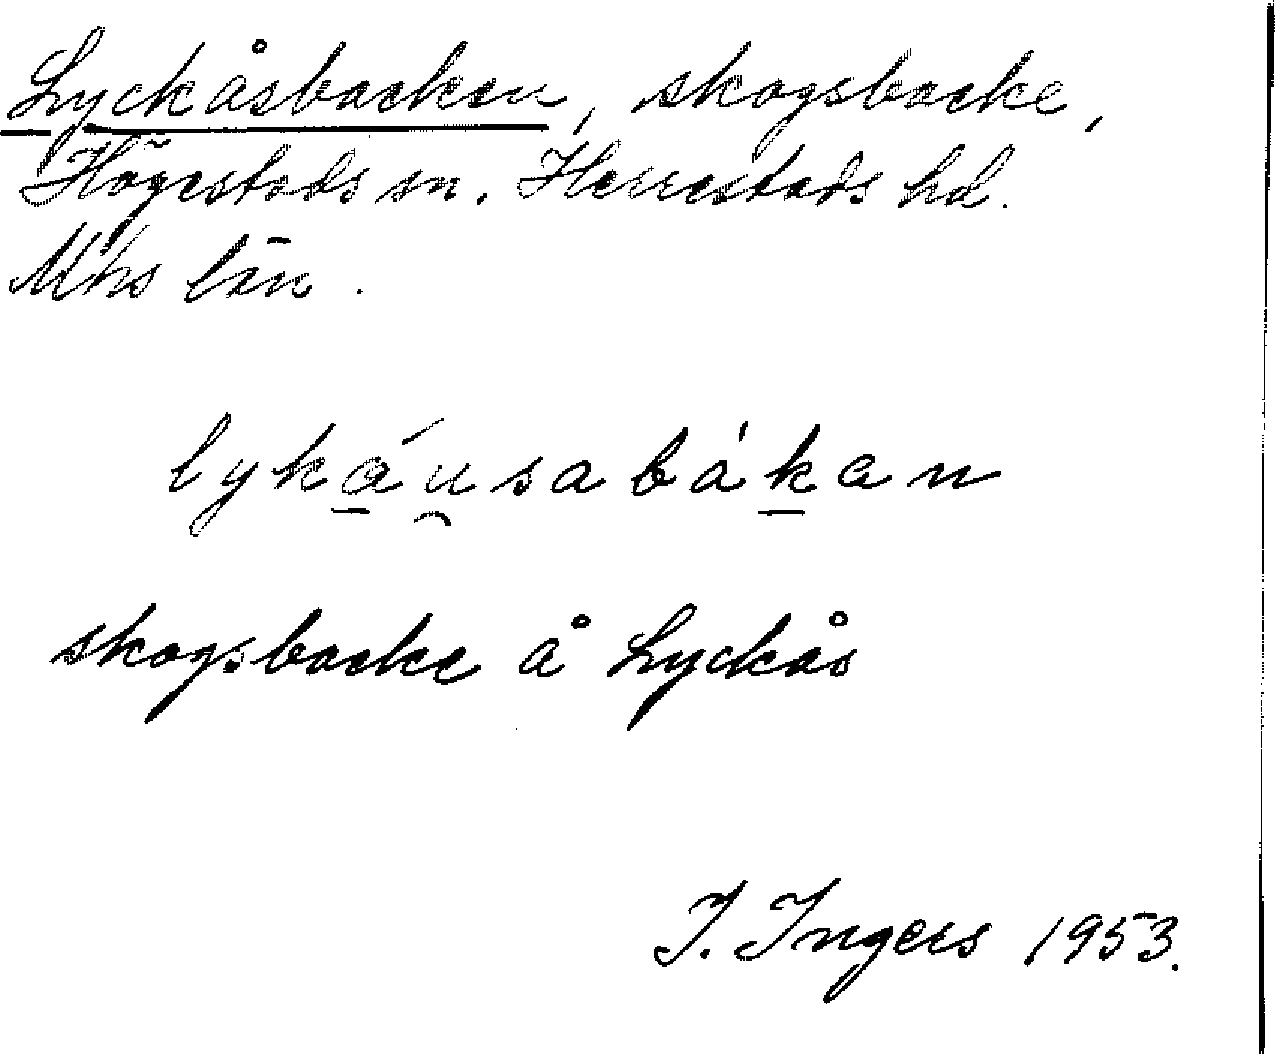 Lyckåsbacken, skogsbacke,
Högestads sn. Herrestads hd.
Mhs län.
lykáu̯sabák̲an
skogsbacke å Lyckås
I. Ingers 1953.